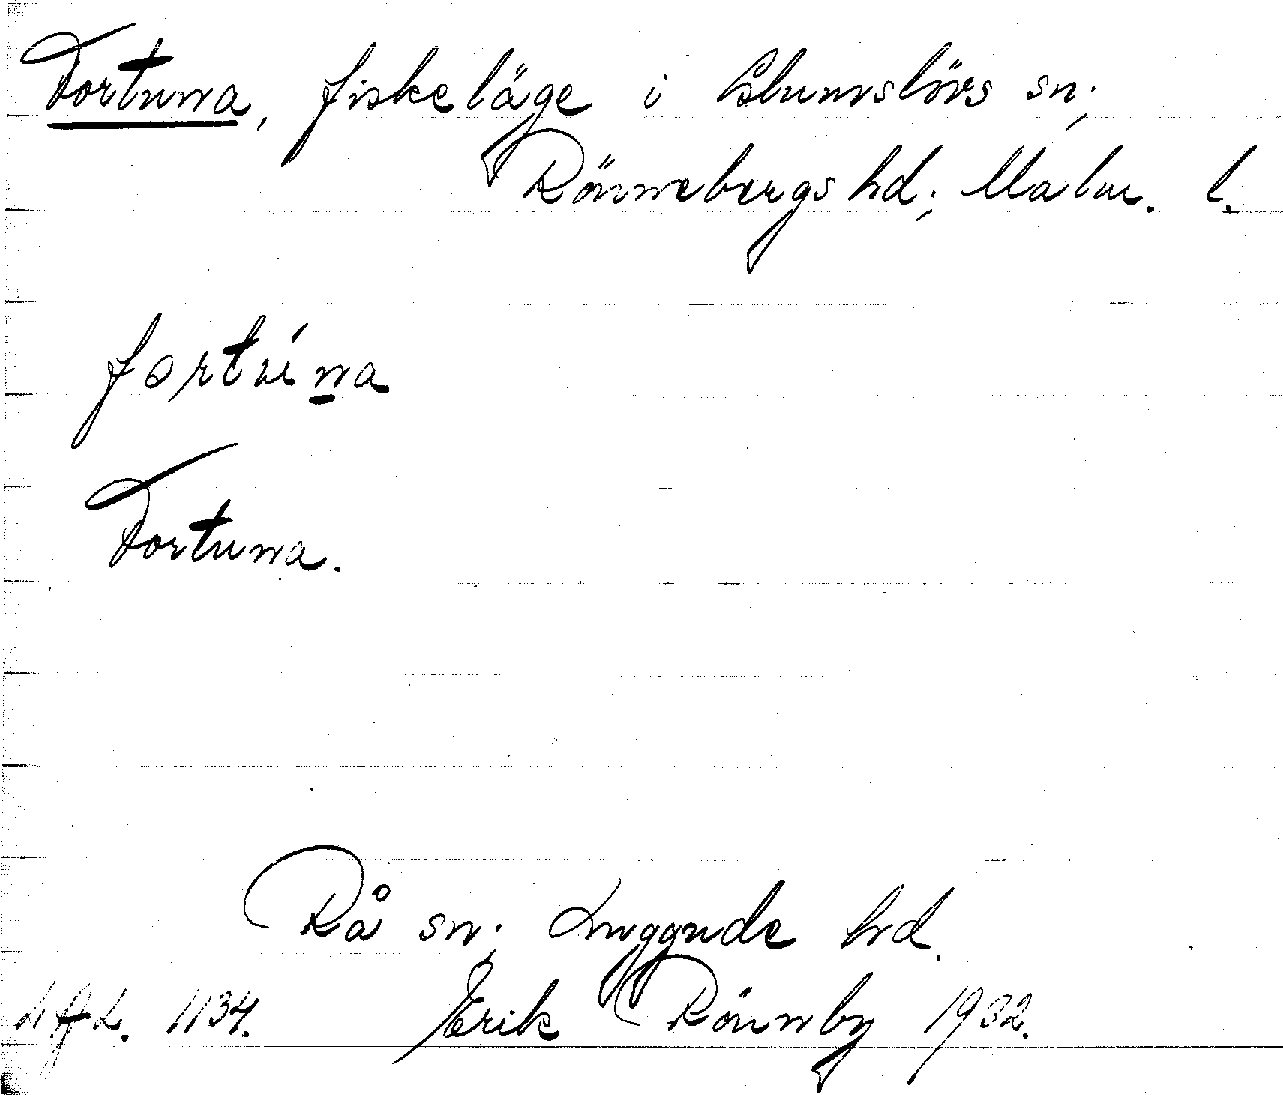 Fortuna, fiskeläge i Glumslövs sn;
Rönnebergs hd; Malm. l.
fortúna
Fortuna.
Rå sn; Luggude hd.
LAL. 1134. Erik Rönnby 1932.